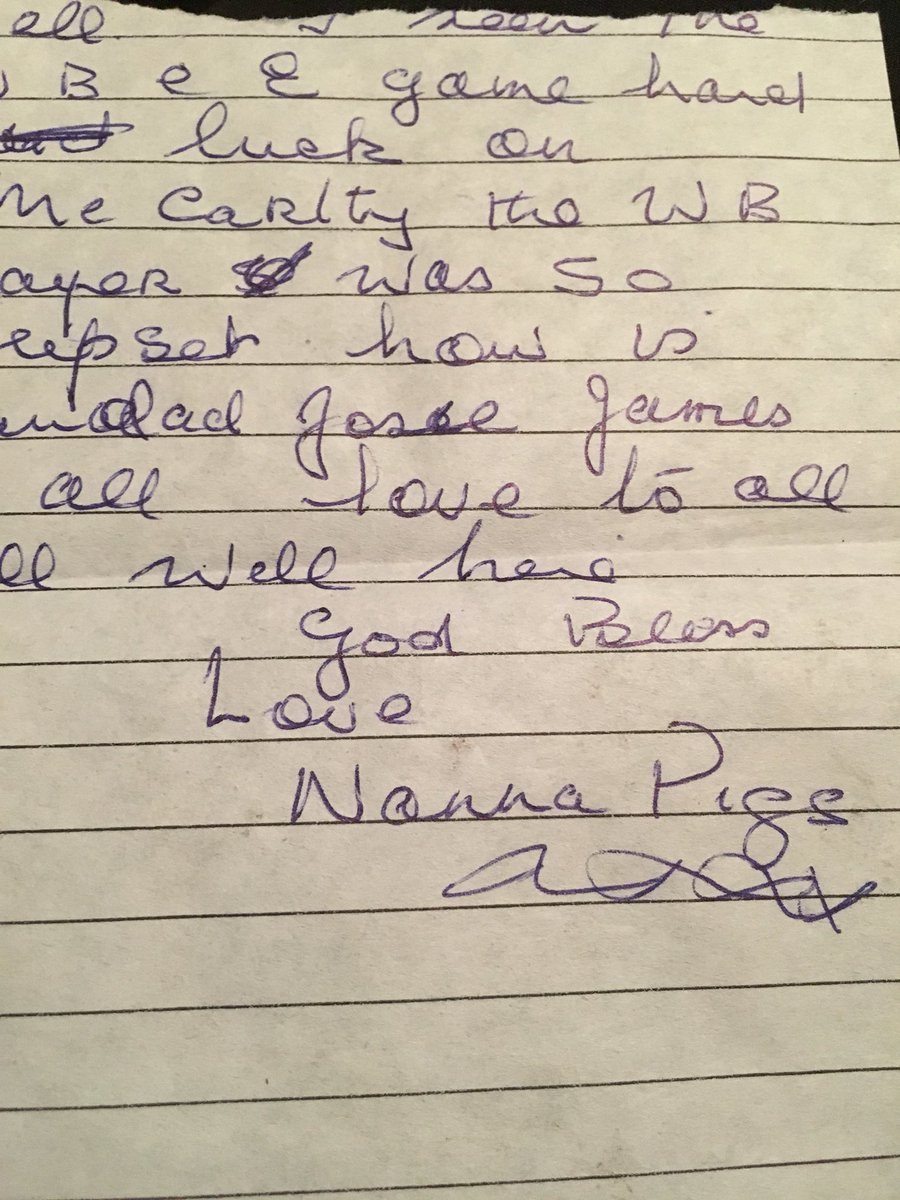 ell I seen the
B e E game hard
luck on
Mc Carlty the WB
ayer was so
upset how is
andad Josie James
all love to all
ll well here
God Bless
Love
Nanna Pigs